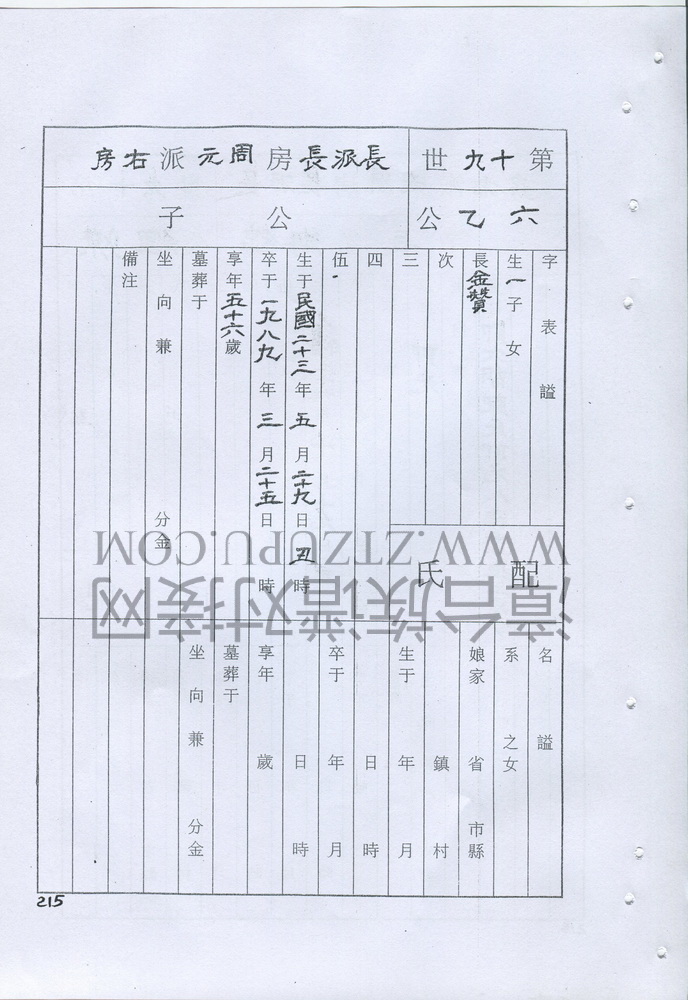 第十九世
長派長房周元派右房
六乙公
公子
字表謚
生一子女
長金贊
次
三
四
伍
生于民國二十三年五月二十九日丑時
卒于一九八九年三月二十五日時
享年五十六歲
墓葬于
坐向兼分金
備注
配氏
名謚
系之女
娘家省市縣
鎮村
生于年月
日時
卒于年月
日時
享年歲
墓葬于
坐向兼分金
215
WWW.ZTZUPU.COM
漳台族谱对接网